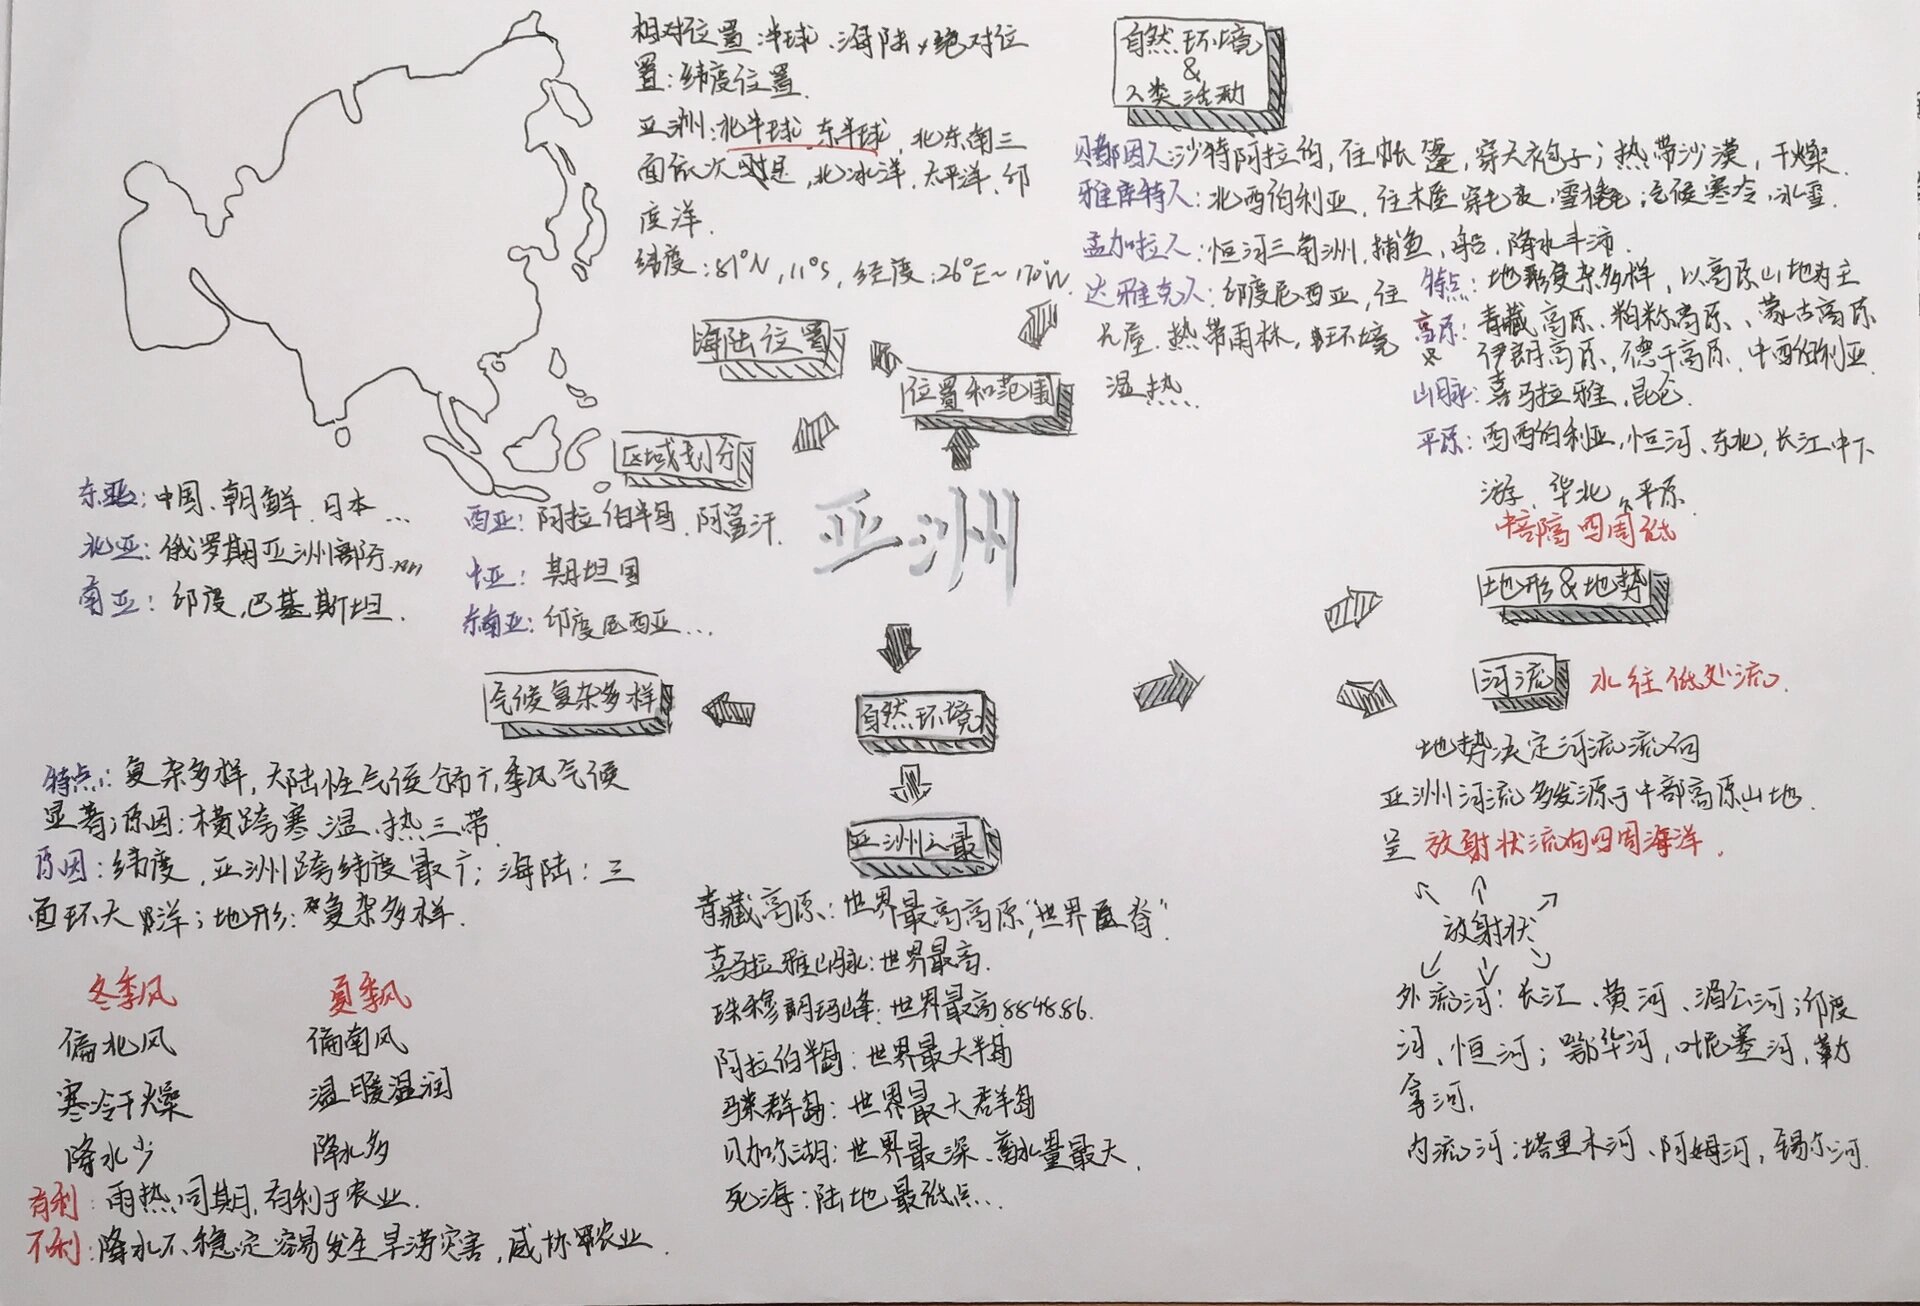 相对位置:半球、海陆,绝对位
置:纬度位置.
亚洲:北半球,东半球,北东南三
面依次是,北冰洋、太平洋、印
度洋.
纬度:81°N,11°S,经度:26°E~170°W.
海陆位置
位置和范围
区域划分
自然环境
&
人类活动
贝都因人沙特阿拉伯,住帐篷,穿大袍子;热带沙漠,干燥.
雅库特人:北西伯利亚,住木屋 穿毛皮,雪橇;气候寒冷,冰雪.
孟加拉人:恒河三角洲,捕鱼,船,降水丰沛.
达雅克人:印度尼西亚,住
长屋.热带雨林,环境
温热.
特点:地形复杂多样,以高原山地为主
高原:青藏高原、帕米尔高原、蒙古高原
伊朗高原、德干高原、中西伯利亚
山脉:喜马拉雅,昆仑.
平原:西西伯利亚,恒河、东北,长江中下
游、华北平原.
中部高四周低
地形&地势
东亚:中国、朝鲜、日本...
北亚:俄罗斯亚洲部分....
南亚:印度,巴基斯坦.
西亚:阿拉伯半岛、阿富汗.
中亚:斯坦国
东南亚:印度尼西亚...
亚洲
气候复杂多样
自然环境
河流
水往低处流.
地势决定河流流向
亚洲河流多发源于中部高原山地.
呈放射状流向四周海洋.
放射状
外流河:长江、黄河、湄公河;印度
河、恒河;鄂毕河,叶尼塞河,勒
拿河.
内流河:塔里木河、阿姆河,锡尔河.
特点:复杂多样,大陆性气候分布广,季风气候
显著;原因:横跨寒、温、热三带.
原因:纬度,亚洲跨纬度最广;海陆:三
面环大洋;地形:复杂多样.
冬季风 夏季风
偏北风 偏南风
寒冷干燥 温暖湿润
降水少 降水多
有利:雨热同期,有利于农业.
不利:降水不稳定容易发生旱涝灾害,威胁农业.
亚洲之最
青藏高原:世界最高高原,“世界屋脊”.
喜马拉雅山脉:世界最高.
珠穆朗玛峰:世界最高.8848.86.
阿拉伯半岛:世界最大半岛
马来群岛:世界最大群岛
贝加尔湖:世界最深、蓄水量最大.
死海:陆地最低点..